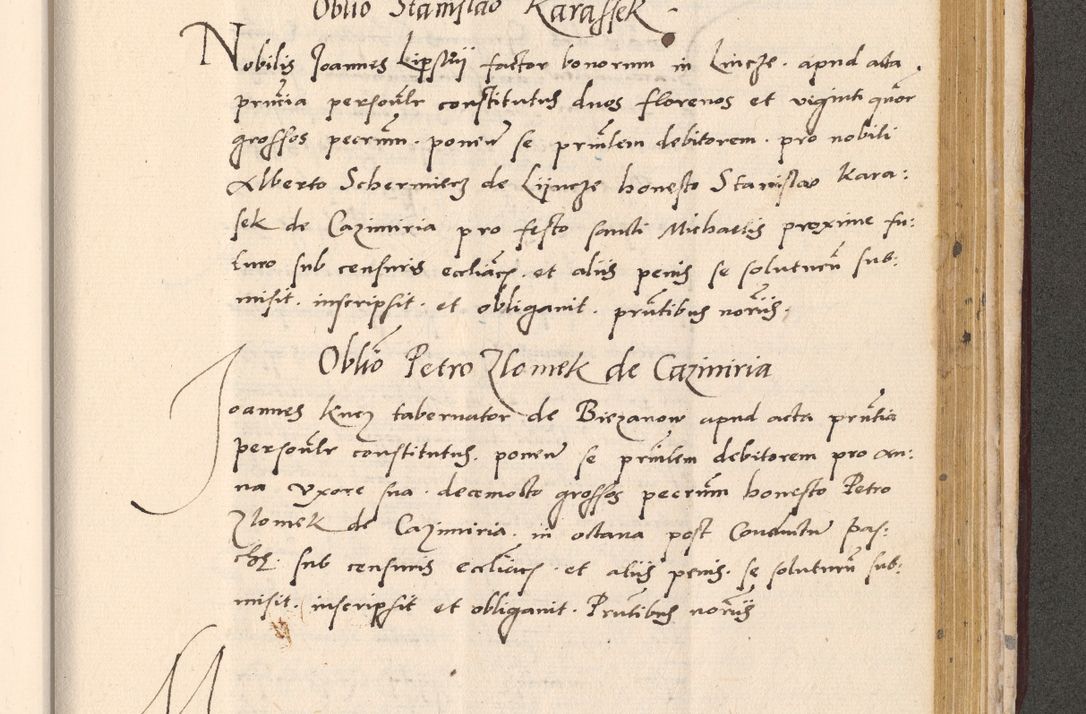 Oblio Stanislao Karassek
Nobilis Joannes Lipskij factor bonorum in Lincze. apud acta
prntia personlr constitutus duos florenos et viginti quor
grossos pecrum. ponens se prinlem debitorem. pro nobili
Alberto Schermiecz de Lijncze honesto Stanislao Kara:
sek de Cazimiria pro festo sancti Michaelis proxime fu:
turo sub censuris ecclias. et aliis penis se soluturu sub:
misit. inscripsit. et obligauit. prntibus noriis.
Oblio Petro Zlomek de Cazimiria
Joannes Kucz tabernator de Biezanow apud acta prntia
personlr constitutus. ponens se prinlem debitorem pro An:
na Vxore sua. decemocto grossos pecrum honesto Petro
Zlomek de Cazimiria. in octaua post Conductu Pas:
che. sub censuris ecclias. et aliis penis. se soluturu sub:
misit. inscripsit et obligauit. Prntibus noriis